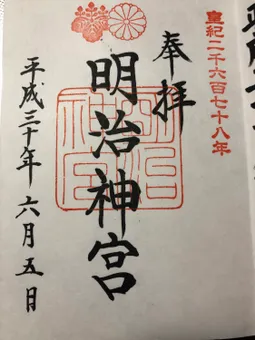 皇紀二千六百七十八年
奉拝
明治神宮
明治
神宮
平成三十年 六月五日